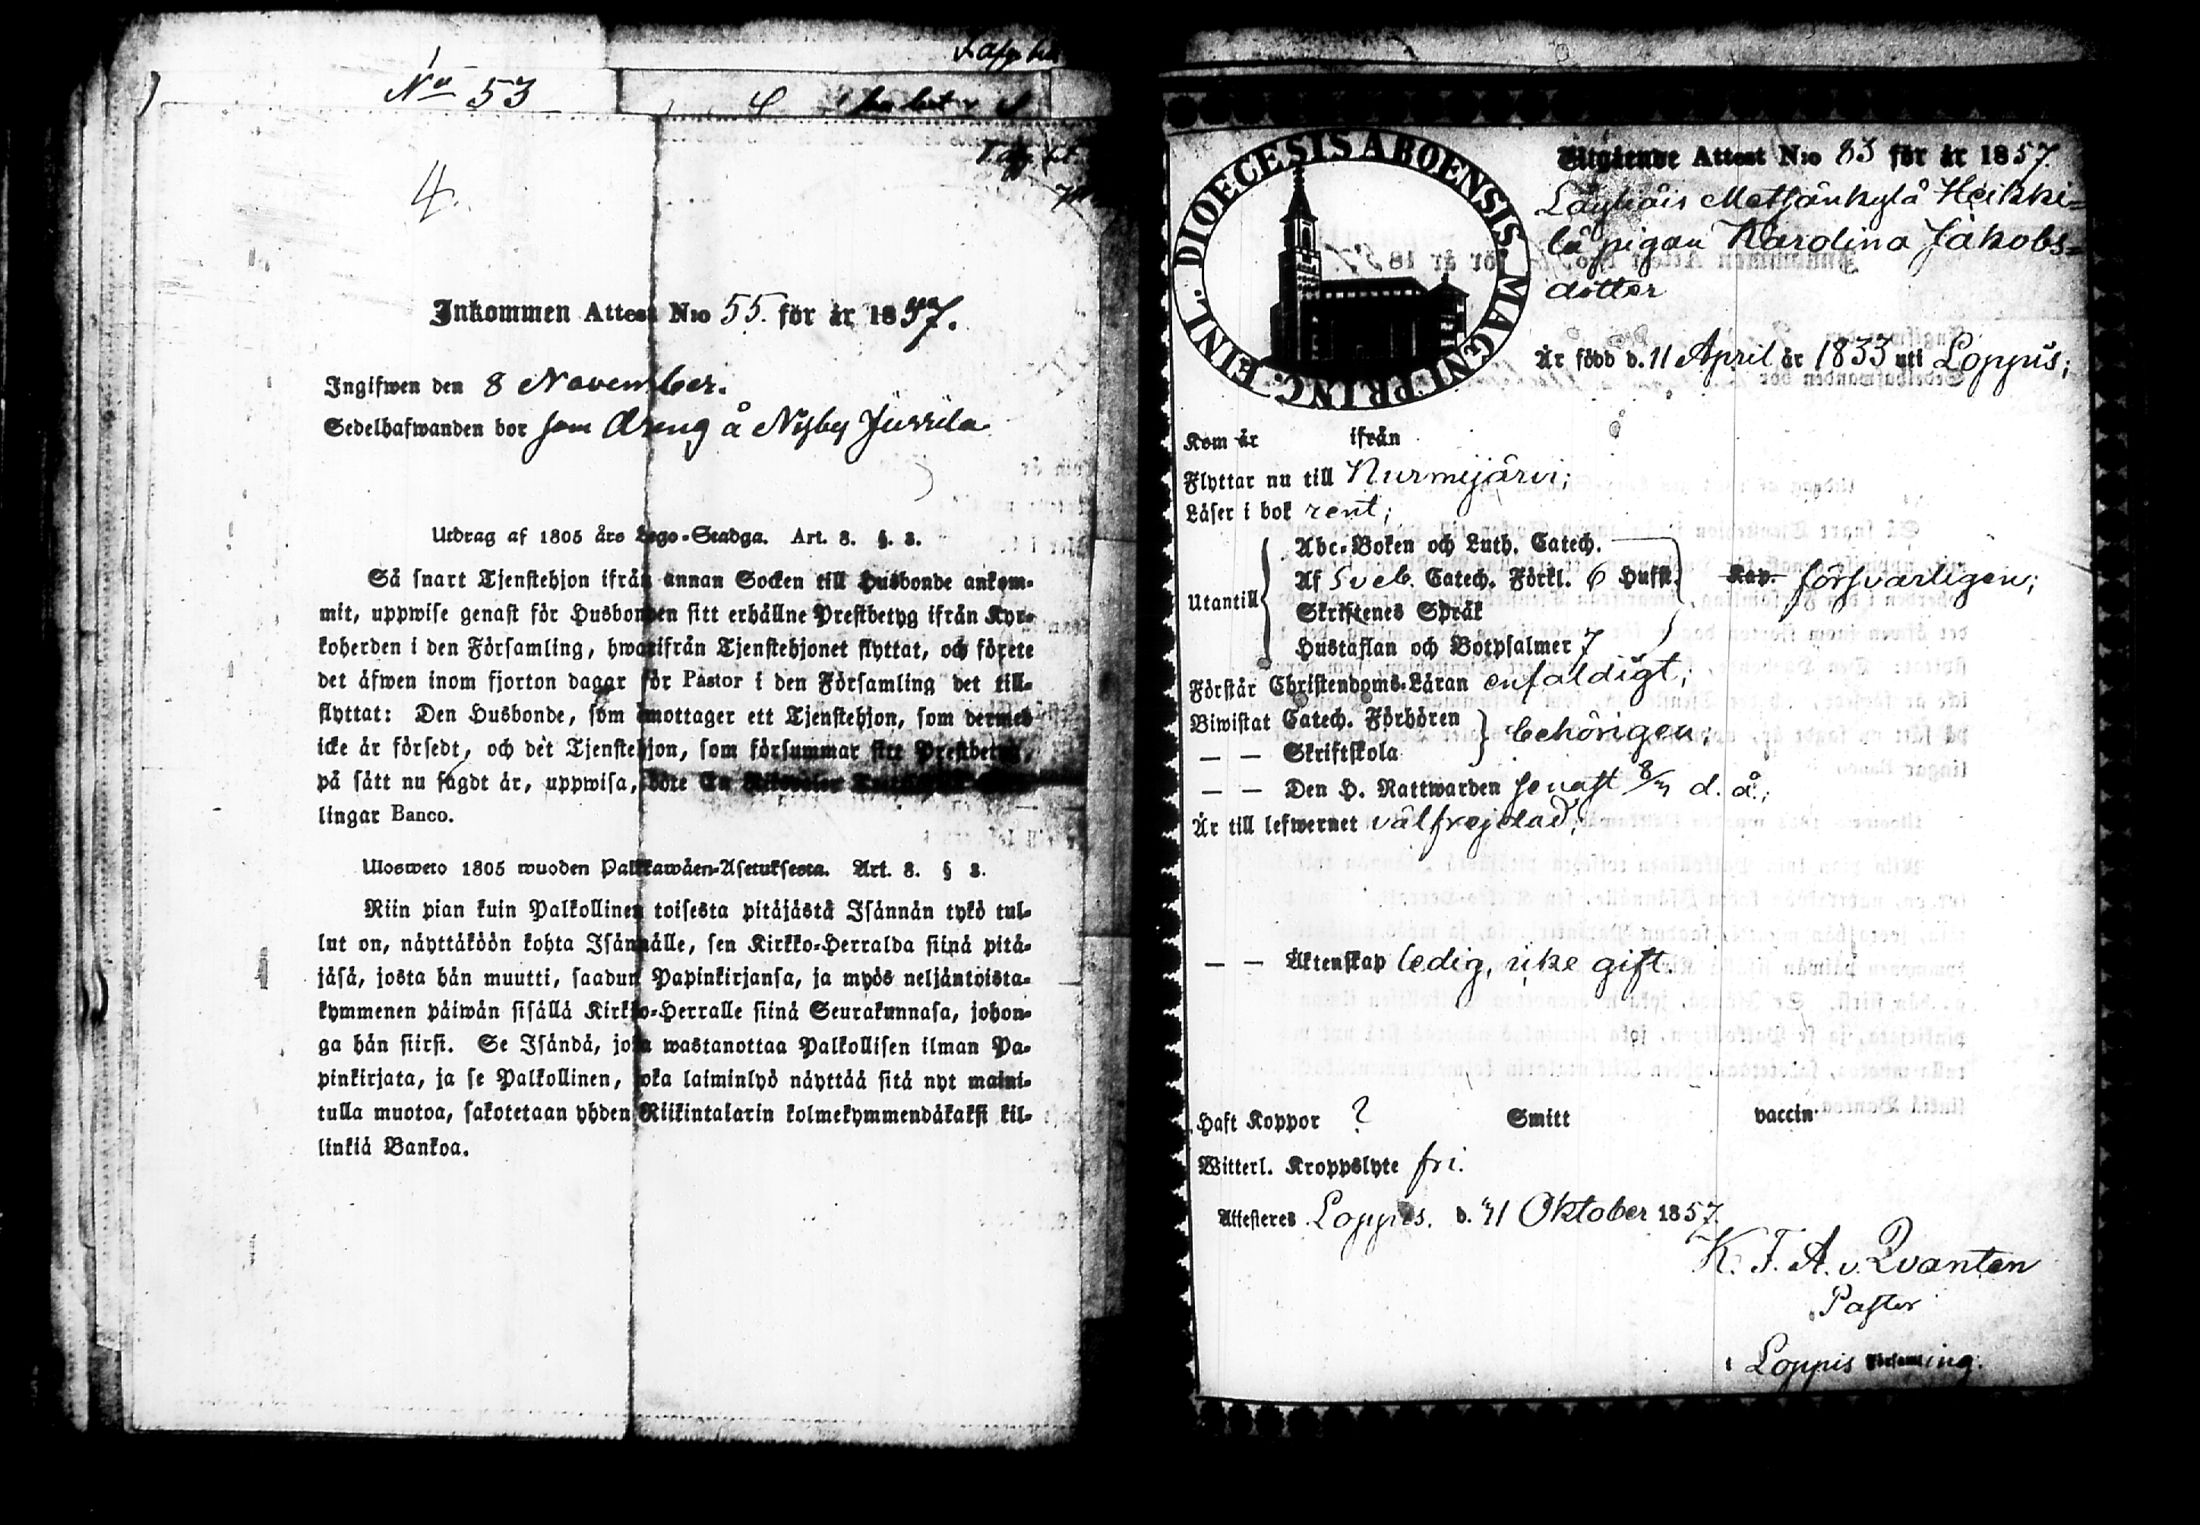 No 53
4.
Inkommen Attest N:o 55. för år 1857.
Ingifwen den 8 November.
Sedelhafwanden bor som dreng å Nisby Jussila
Utdrag af 1805 års Lego-Stadga. Art. 8. §. 3.
Så snart Tjenstehjon ifrån annan Socken till Husbonde ankom-
mit, uppwise genast för Husbonden sitt erhållne Prestbetyg ifrån Kyr-
koherden i den Församling, hwarifrån Tjenstehjonet flyttat, och förete
det äfwen inom fjorton dagar för Pastor i den Församling det till-
flyttat: Den Husbonde, som emottager ett Tjenstehjon, som dermed
icke är försedt, och det Tjenstehjon, som försummar sitt Prestbetyg,
på sätt nu sagdt är, uppwisa, böte En Riksdaler
lingar Banco.
Ulosweto 1805 wuoden Palkkawäen-Asetuksesta. Art. 8. § 3.
Niin pian kuin Palkollinen toisesta pitäjästä Isännän tykö tul-
lut on, näyttäköön kohta Isännälle, sen Kirkko-Herralda siinä pitä-
jäsä, josta hän muutti, saadun Papinkirjansa, ja myös neljäntoista-
kymmenen päiwän sisällä Kirkko-Herralle siinä Seurakunnasa, johon-
ga hän siirsi. Se Isändä, joka wastanottaa Palkollisen ilman Pa-
pinkirjata, ja se Palkollinen, joka laiminlyö näyttää sitä nyt maini-
tulla muotoa, sakotetaan yhden Riikintalarin kolmekymmendäkaksi kil-
linkiä Bankoa.
DIOECESIS ABOENSIS MAGNI PRINC. FINL.
Utgående Attest N:o 83 för år 1857.
Läyliäis Metsänkylä Heikki=
lä pigan Karolina Jakobs=
dotter
Är född d. 11 April år 1833 uti Loppis;
Kom år ifrån
Flyttar nu till Nurmijärvi;
Läser i bok rent;
Utantill
Abc-Boken och Luth. Catech.
Af Sveb. Catech. Förkl. 6 Hufst. Kap. försvarligen;
Skriftenes Språk
Hustaflan och Botpsalmer 7
Förstår Christendoms-Läran enfaldigt;
Biwistat Catech. Förhören behörigen;
— — Skriftskola
— — Den H. Nattwarden senast 8/ d. å.;
Är till lefwernet välfrejdad;
— — Äktenskap ledig, icke gift.
Haft Koppor ? Smitt vaccin.
Witterl. Kroppslyte fri.
Attesteres Loppis. d. 11 Oktober 1857.
K. F. A. v. Qvanten
Pastor
i Loppis Församling.